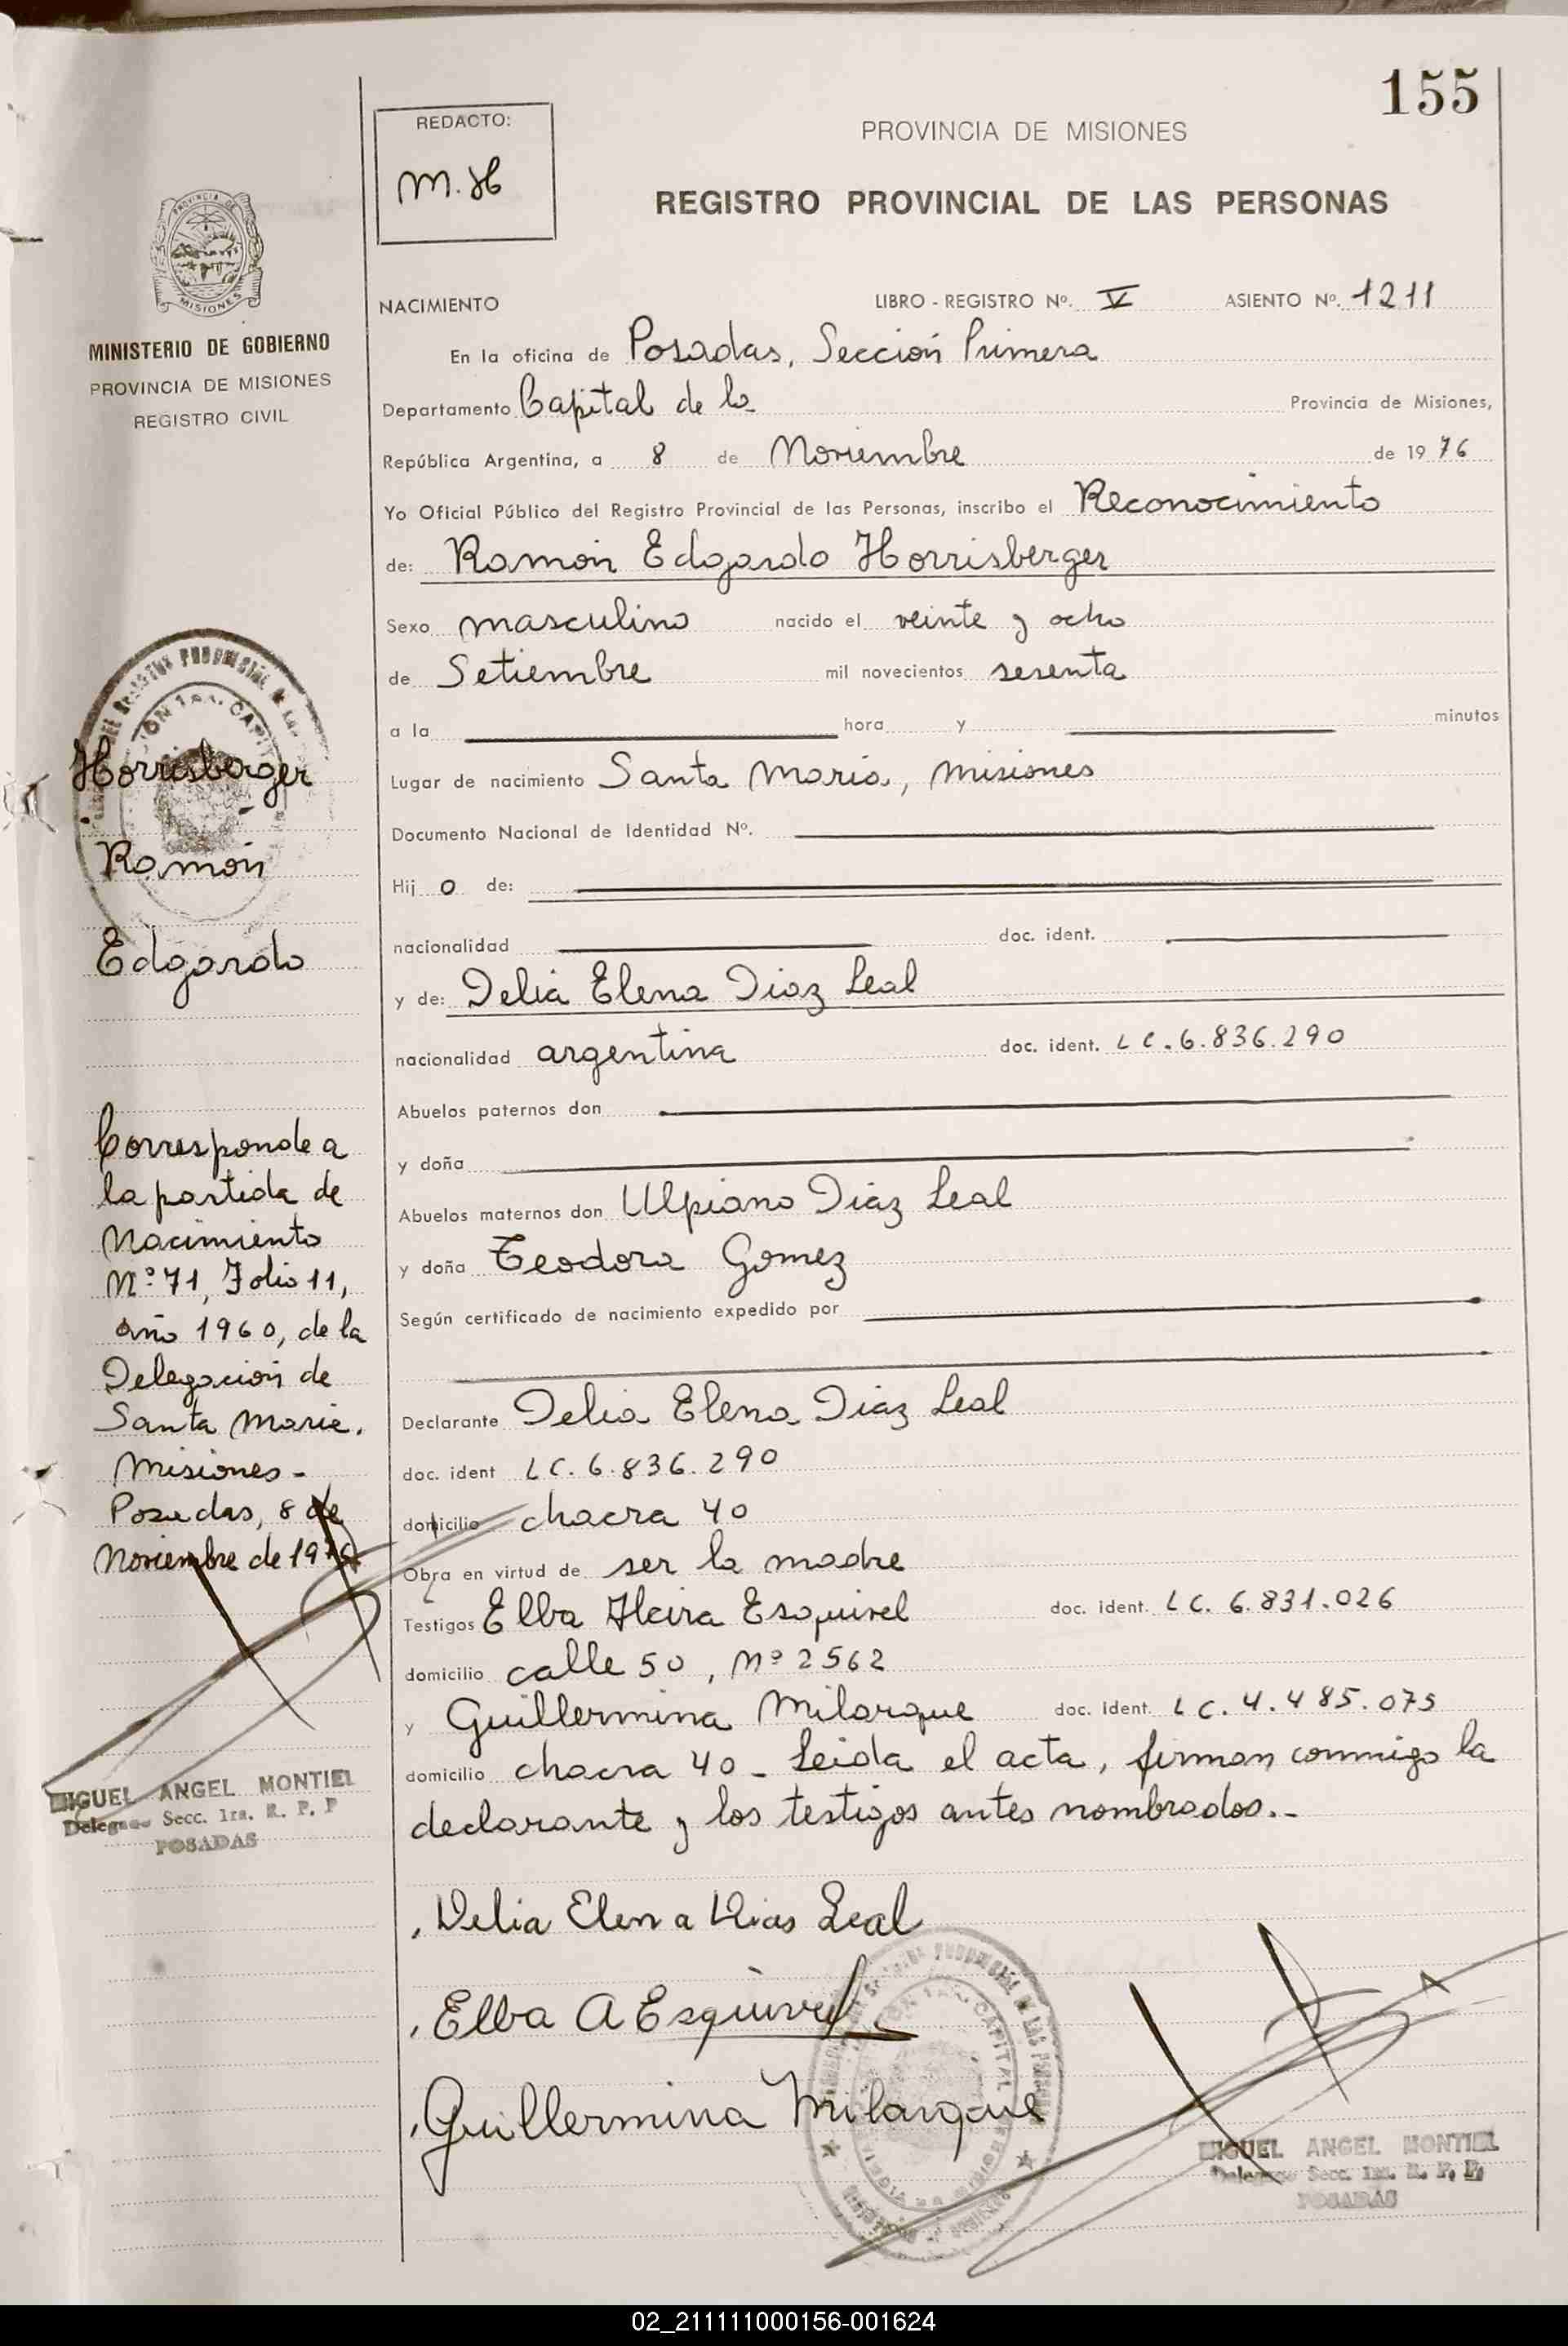 155
REDACTO:
M.H
PROVINCIA DE MISIONES
REGISTRO PROVINCIAL DE LAS PERSONAS
PROVINCIA DE
MISIONES
MINISTERIO DE GOBIERNO
PROVINCIA DE MISIONES
REGISTRO CIVIL
NACIMIENTO LIBRO - REGISTRO Nº. V ASIENTO Nº. 1211
En la oficina de Posadas, Sección Primera
Departamento Capital de la Provincia de Misiones,
República Argentina, a 8 de Noviembre de 1976
Yo Oficial Público del Registro Provincial de las Personas, inscribo el Reconocimiento
de: Ramón Edgardo Horrisberger
Sexo masculino nacido el veinte y ocho
de Setiembre mil novecientos sesenta
a la hora y minutos
Lugar de nacimiento Santa María, Misiones
Documento Nacional de Identidad Nº.
Hij o de:
nacionalidad doc. ident.
y de: Delia Elena Diaz Leal
nacionalidad argentina doc. ident. LC.6.836.290
Abuelos paternos don
y doña
Abuelos maternos don Ulpiano Diaz Leal
y doña Teodora Gomez
Según certificado de nacimiento expedido por
Declarante Delia Elena Diaz Leal
doc. ident LC.6.836.290
domicilio chacra 40
Obra en virtud de ser la madre
Testigos Elba Esquivel doc. ident. LC. 6.831.026
domicilio calle 50, Nº 2562
y Guillermina Milarque doc. ident. LC.4.485.075
domicilio chacra 40_ Leida el acta, firman conmigo la
declarante y los testigos antes nombrados.-
Delia Elena Dias Leal
Elba A Esquivel
Guillermina Milarque
MIGUEL ANGEL MONTIEL
Delegado Secc. 1ra. R. P. P.
POSADAS
Horrisberger
Ramón
Edgardo
Corresponde a
la partida de
Nacimiento
Nº 71, Folio 11,
año 1960, de la
Delegación de
Santa Maria.
Misiones -
Posadas, 8 de
Noviembre de 1976
MIGUEL ANGEL MONTIEL
Delegado Secc. 1ra. R. P. P
POSADAS
02_211111000156-001624